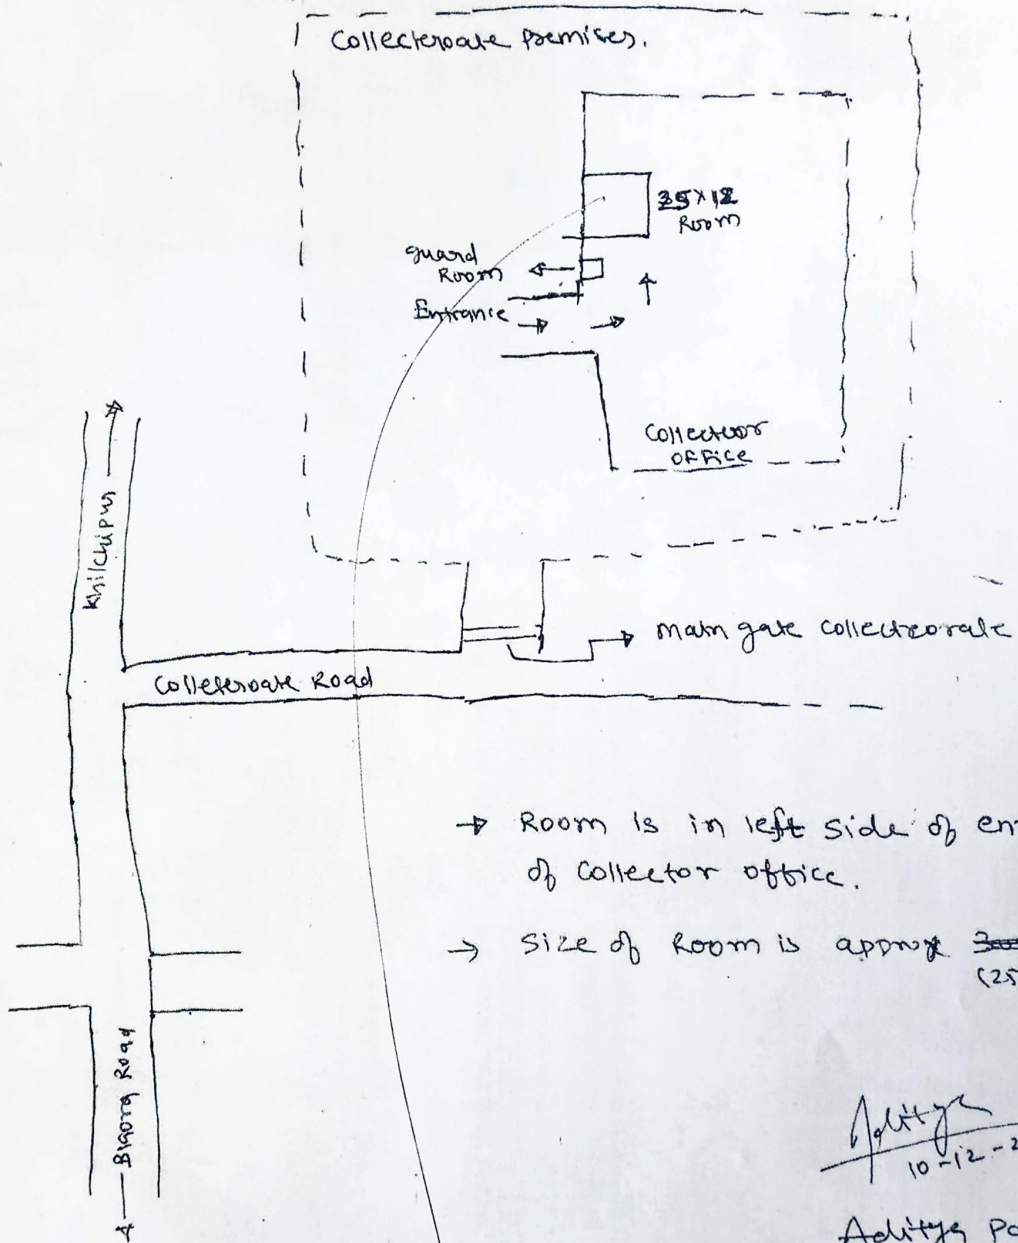 Collecteroate Premises.
25x12
Room
guard
Room
Entrance
Collector
OFFICE
Khilchipur
main gate collecteorate
Colleteroate Road
→ Room is in left side of en
of Collector office.
→ Size of Room is approx
(25
Biaora Road
Aditya
10-12-2
Aditya Pa